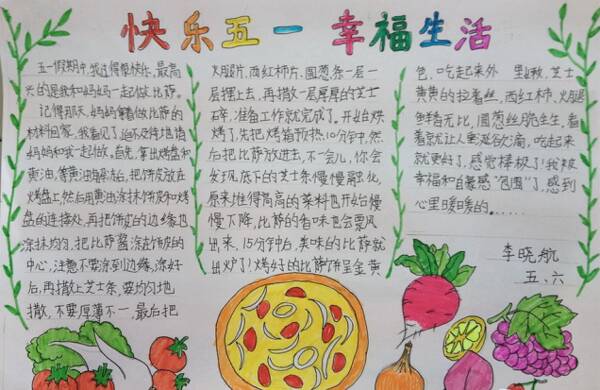 快乐五一 幸福生活
五一假期中,我过得很快乐,最高
兴的是我和妈妈一起做比萨。
记得那天,妈妈拿着做比萨的
材料回家。我看见了迫不及待地请
妈妈和我一起做。首先,拿出烤盘和
黄油,等黄油融后,把饼皮放在
烤盘上,然后用黄油涂抹饼皮和烤
盘的连接处,再把饼皮的边缘也
涂抹均匀,把比萨酱涂在饼皮的
中心,注意不要涂到边缘,涂好
后,再撒上芝士条,要均匀地
撒,不要厚薄不一,最后把
火腿片,西红柿片,圆葱条一层一
层摆上去,再撒一层厚厚的芝士
碎,准备工作就完成了。开始烘
烤了,先把烤箱预热10分钟,然
后把比萨放进去,不一会儿,你会
发现底下的芝士条慢慢融化,
原来堆得高高的菜料也开始慢
慢下降,比萨的香味也会飘
出来,15分钟后,美味的比萨就
出炉了!烤好的比萨饼呈金黄
色,吃起来外 里软,芝士
黄黄的拉着丝,西红柿、火腿
鲜香无比,圆葱丝脆生生,看
着就让人垂涎欲滴,吃起来
就更好了,感觉棒极了!我被
幸福和自豪感“包围”了,感到
心里暖暖的。.....
李晓航
五、六